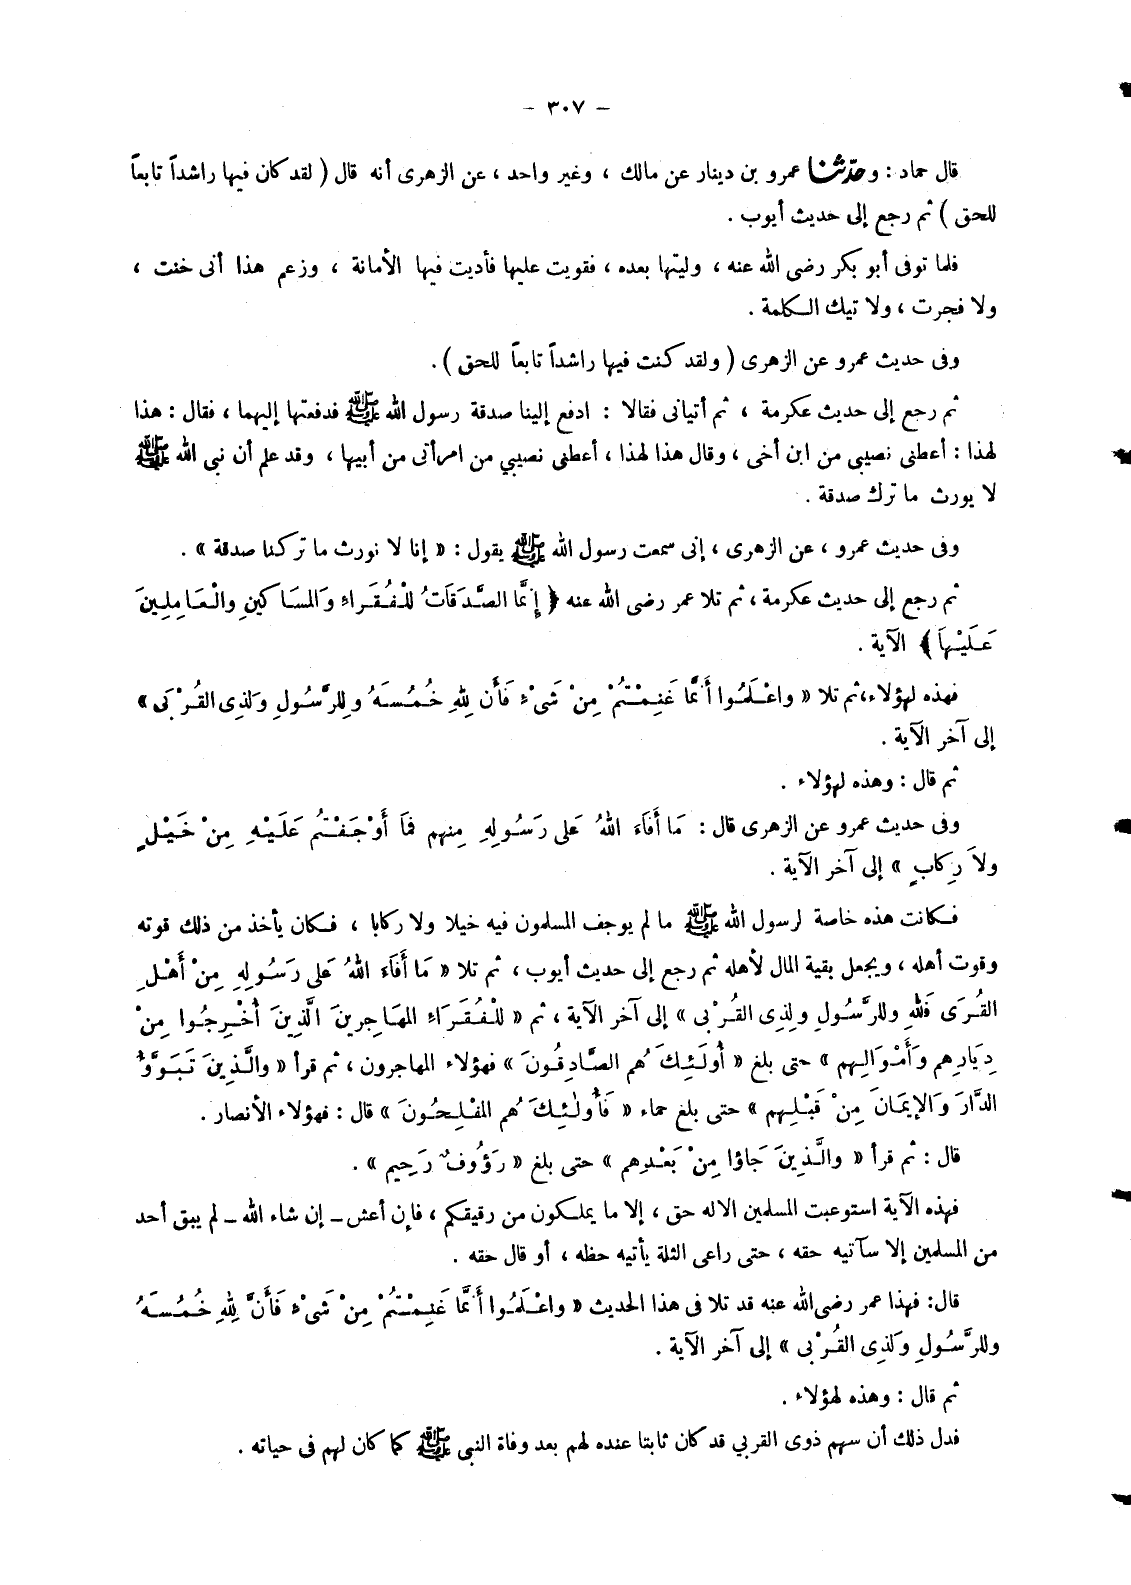 – ٣٠٧ –
قال حماد : وحدّثنا عمرو بن دينار عن مالك ، وغير واحد ، عن الزهرى أنه قال ( لقد كان فيها راشداً تابعاً
للحق ) ثم رجع إلى حديث أيوب .
فلما توفى أبو بكر رضى الله عنه ، وليتها بعده ، فقويت عليها فأديت فيها الأمانة ، وزعم هذا أنى خنت ،
ولا فجرت ، ولا تيك الكلمة .
وفى حديث عمرو عن الزهرى ( ولقد كنت فيها راشداً تابعاً للحق ) .
ثم رجع إلى حديث عكرمة ، ثم أتيانى فقالا : ادفع إلينا صدقة رسول الله ﷺ فدفعتها إليهما ، فقال : هذا
لهذا : أعطنى نصيبى من ابن أخى ، وقال هذا لهذا ، أعطنى نصيبي من امرأتى من أبيها ، وقد علم أن نبى الله ﷺ
لا يورث ما ترك صدقة .
وفى حديث عمرو ، عن الزهرى ، إنى سمعت رسول الله ﷺ يقول : « إنا لا نورث ما تركنا صدقة » .
ثم رجع إلى حديث عكرمة ، ثم تلا عمر رضى الله عنه ﴿ إِنَّمَا الصَّدَقَاتُ لِلْفُقَرَاءِ وَالمَسَاكِينِ والْعَامِلِينَ
عَلَيْهَا ﴾ الآية .
فهذه لهؤلاء،ثم تلا « واعْلَمُوا أَنَّمَا غَنِمْتُمْ مِنْ شَىْءٍ فَأَن لِلهِ خُمُسَهُ ولِلرَّسُولِ وَلِذِى القُرْبَى »
إلى آخر الآية .
ثم قال : وهذه لهؤلاء .
وفى حديث عمرو عن الزهرى قال : مَا أَفَاءَ اللهُ عَلَى رَسُولِهِ مِنهم فمَا أَوْجَفْتُم عَلَيْهِ مِنْ خَيْلٍ
ولاَ رِكابٍ » إلى آخر الآية .
فكانت هذه خاصة لرسول الله ﷺ ما لم يوجف المسلمون فيه خيلا ولا ركابا ، فكان يأخذ من ذلك قوته
وقوت أهله ، ويجعل بقية المال لأهله ثم رجع إلى حديث أيوب ، ثم تلا « مَا أَفَاءَ اللهُ عَلَى رَسُولِهِ مِنْ أَهْلِ
القُرَى فَللهِ وللرَّسُولِ ولِذِى القُرْبى » إلى آخر الآية ، ثم « لِلْفُقَرَاءِ المهَاجِرينَ الَّذِينَ أُخْرِجُوا مِنْ
دِيَارِهِم وَأَمْوَالِهِم » حتى بلغ « أُولَئِكَ هُم الصَّادِقُونَ » فهؤلاء المهاجرون ، ثم قرأ « والَّذِينَ تَبَوَّؤُا
الدَّارَ وَالإِيمَانَ مِنْ قَبْلِهِم » حتى بلغ حماء « فَأُولٰئِكَ هُم المفْلِحُونَ » قال : فهؤلاء الأنصار .
قال : ثم قرأ « والَّذِينَ جَاؤا مِنْ بَعْدِهِم » حتى بلغ « رَؤُوفٌ رَحِيم » .
فهذه الآية استوعبت المسلمين الاله حق ، إلا ما يملكون من رقيقكم ، فإن أعش ــ إن شاء الله ــ لم يبق أحد
من المسلمين إلا سآتيه حقه ، حتى راعى الثلة يأتيه حظه ، أو قال حقه .
قال : فهذا عمر رضى الله عنه قد تلا فى هذا الحديث « واعْلَمُوا أَنَّمَا غَنِمْتُمْ مِنْ شَىْءٍ فَأَنَّ لِلهِ خُمُسَهُ
وللرَّسُولِ وَلذِى القُرْبى » إلى آخر الآية .
ثم قال : وهذه لهؤلاء .
فدل ذلك أن سهم ذوى القربي قد كان ثابتا عنده لهم بعد وفاة النبى ﷺ كما كان لهم فى حياته .